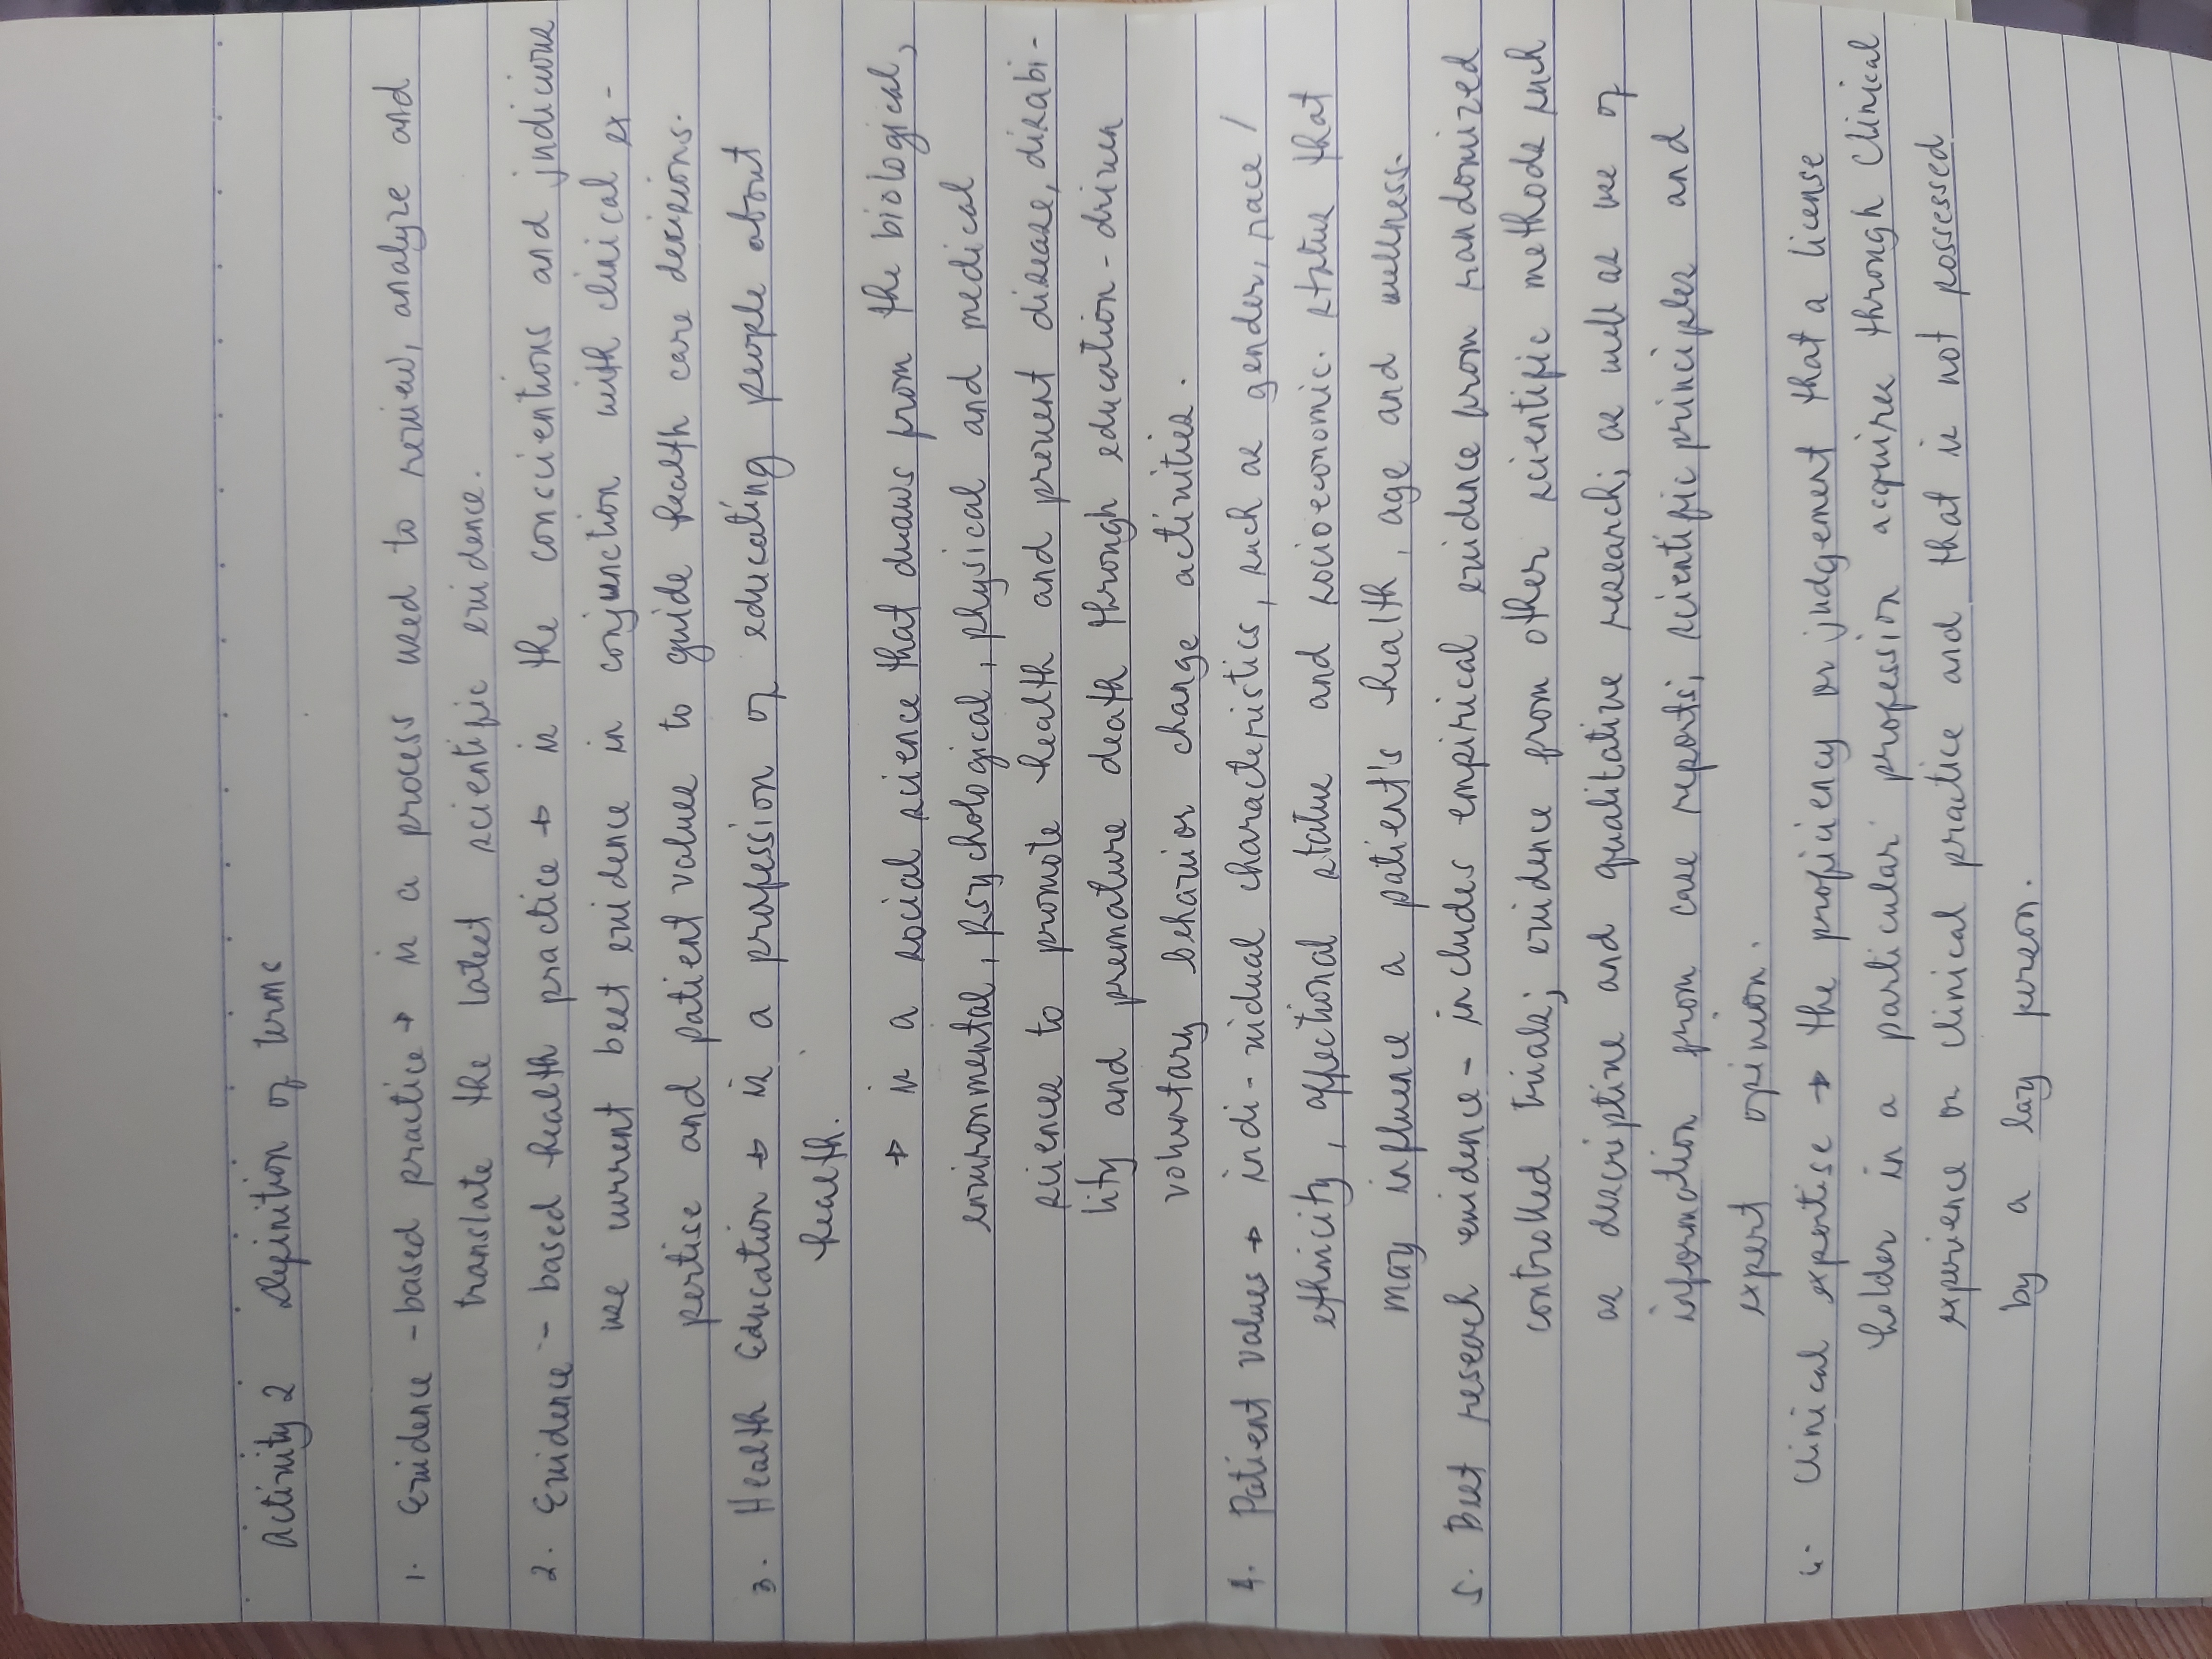 Activity 2 Definition of terms
1. Evidence - based practice → is a process used to review, analyze and
translate the latest scientific evidence.
2. Evidence - based health practice → is the conscientious and judicious
use current best evidence in conjunction with clinical ex-
pertise and patient values to guide health care decisions.
3. Health Education → is a profession of educating people about
health.
→ is a social science that draws from the biological,
environmental, psychological, physical and medical
sciences to promote health and prevent disease, disabi-
lity and premature death through education - driven
voluntary behavior change activities.
4. Patient values → indi - vidual characteristics, such as gender, race /
ethnicity, affectional status and socioeconomic. status that
may influence a patient's health, age and wellness.
5. Best reseach evidence - includes empirical evidence from randomized
controlled trials; evidence from other scientific methods such
as descriptive and qualitative research; as well as use of
information from case reports; scientific principles and
expert opinion.
6. Clinical expertise → the proficiency or judgement that a license
holder in a particular profession acquires through clinical
experience or clinical practice and that is not possessed
by a lay person.